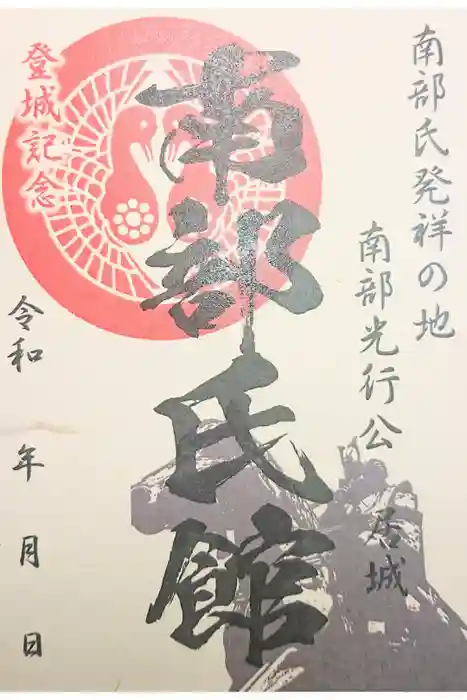 南部氏発祥の地
南部光行公
居城
南部氏館
登城記念
令和
年
月
日